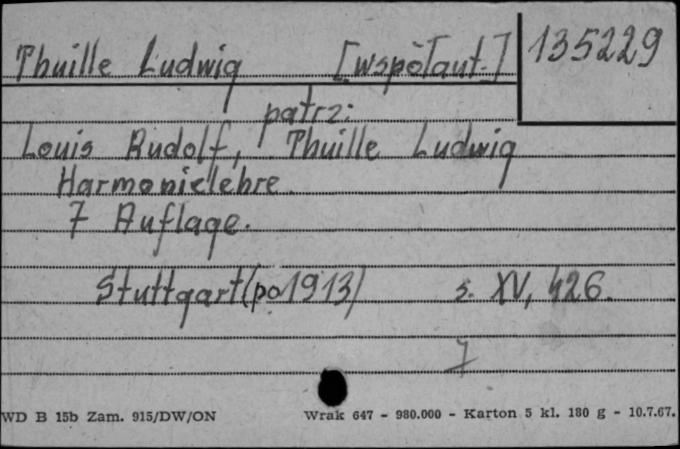 Thuille Ludwig [współaut.] 135229
patrz:
Louis Rudolf, Thuille Ludwig
Harmonielehre.
7 Auflage.
Stuttgart (po 1913) s. XV, 426.
7
WD B 15b Zam. 915/DW/ON Wrak 647 - 980.000 - Karton 5 kl. 180 g - 10.7.67.